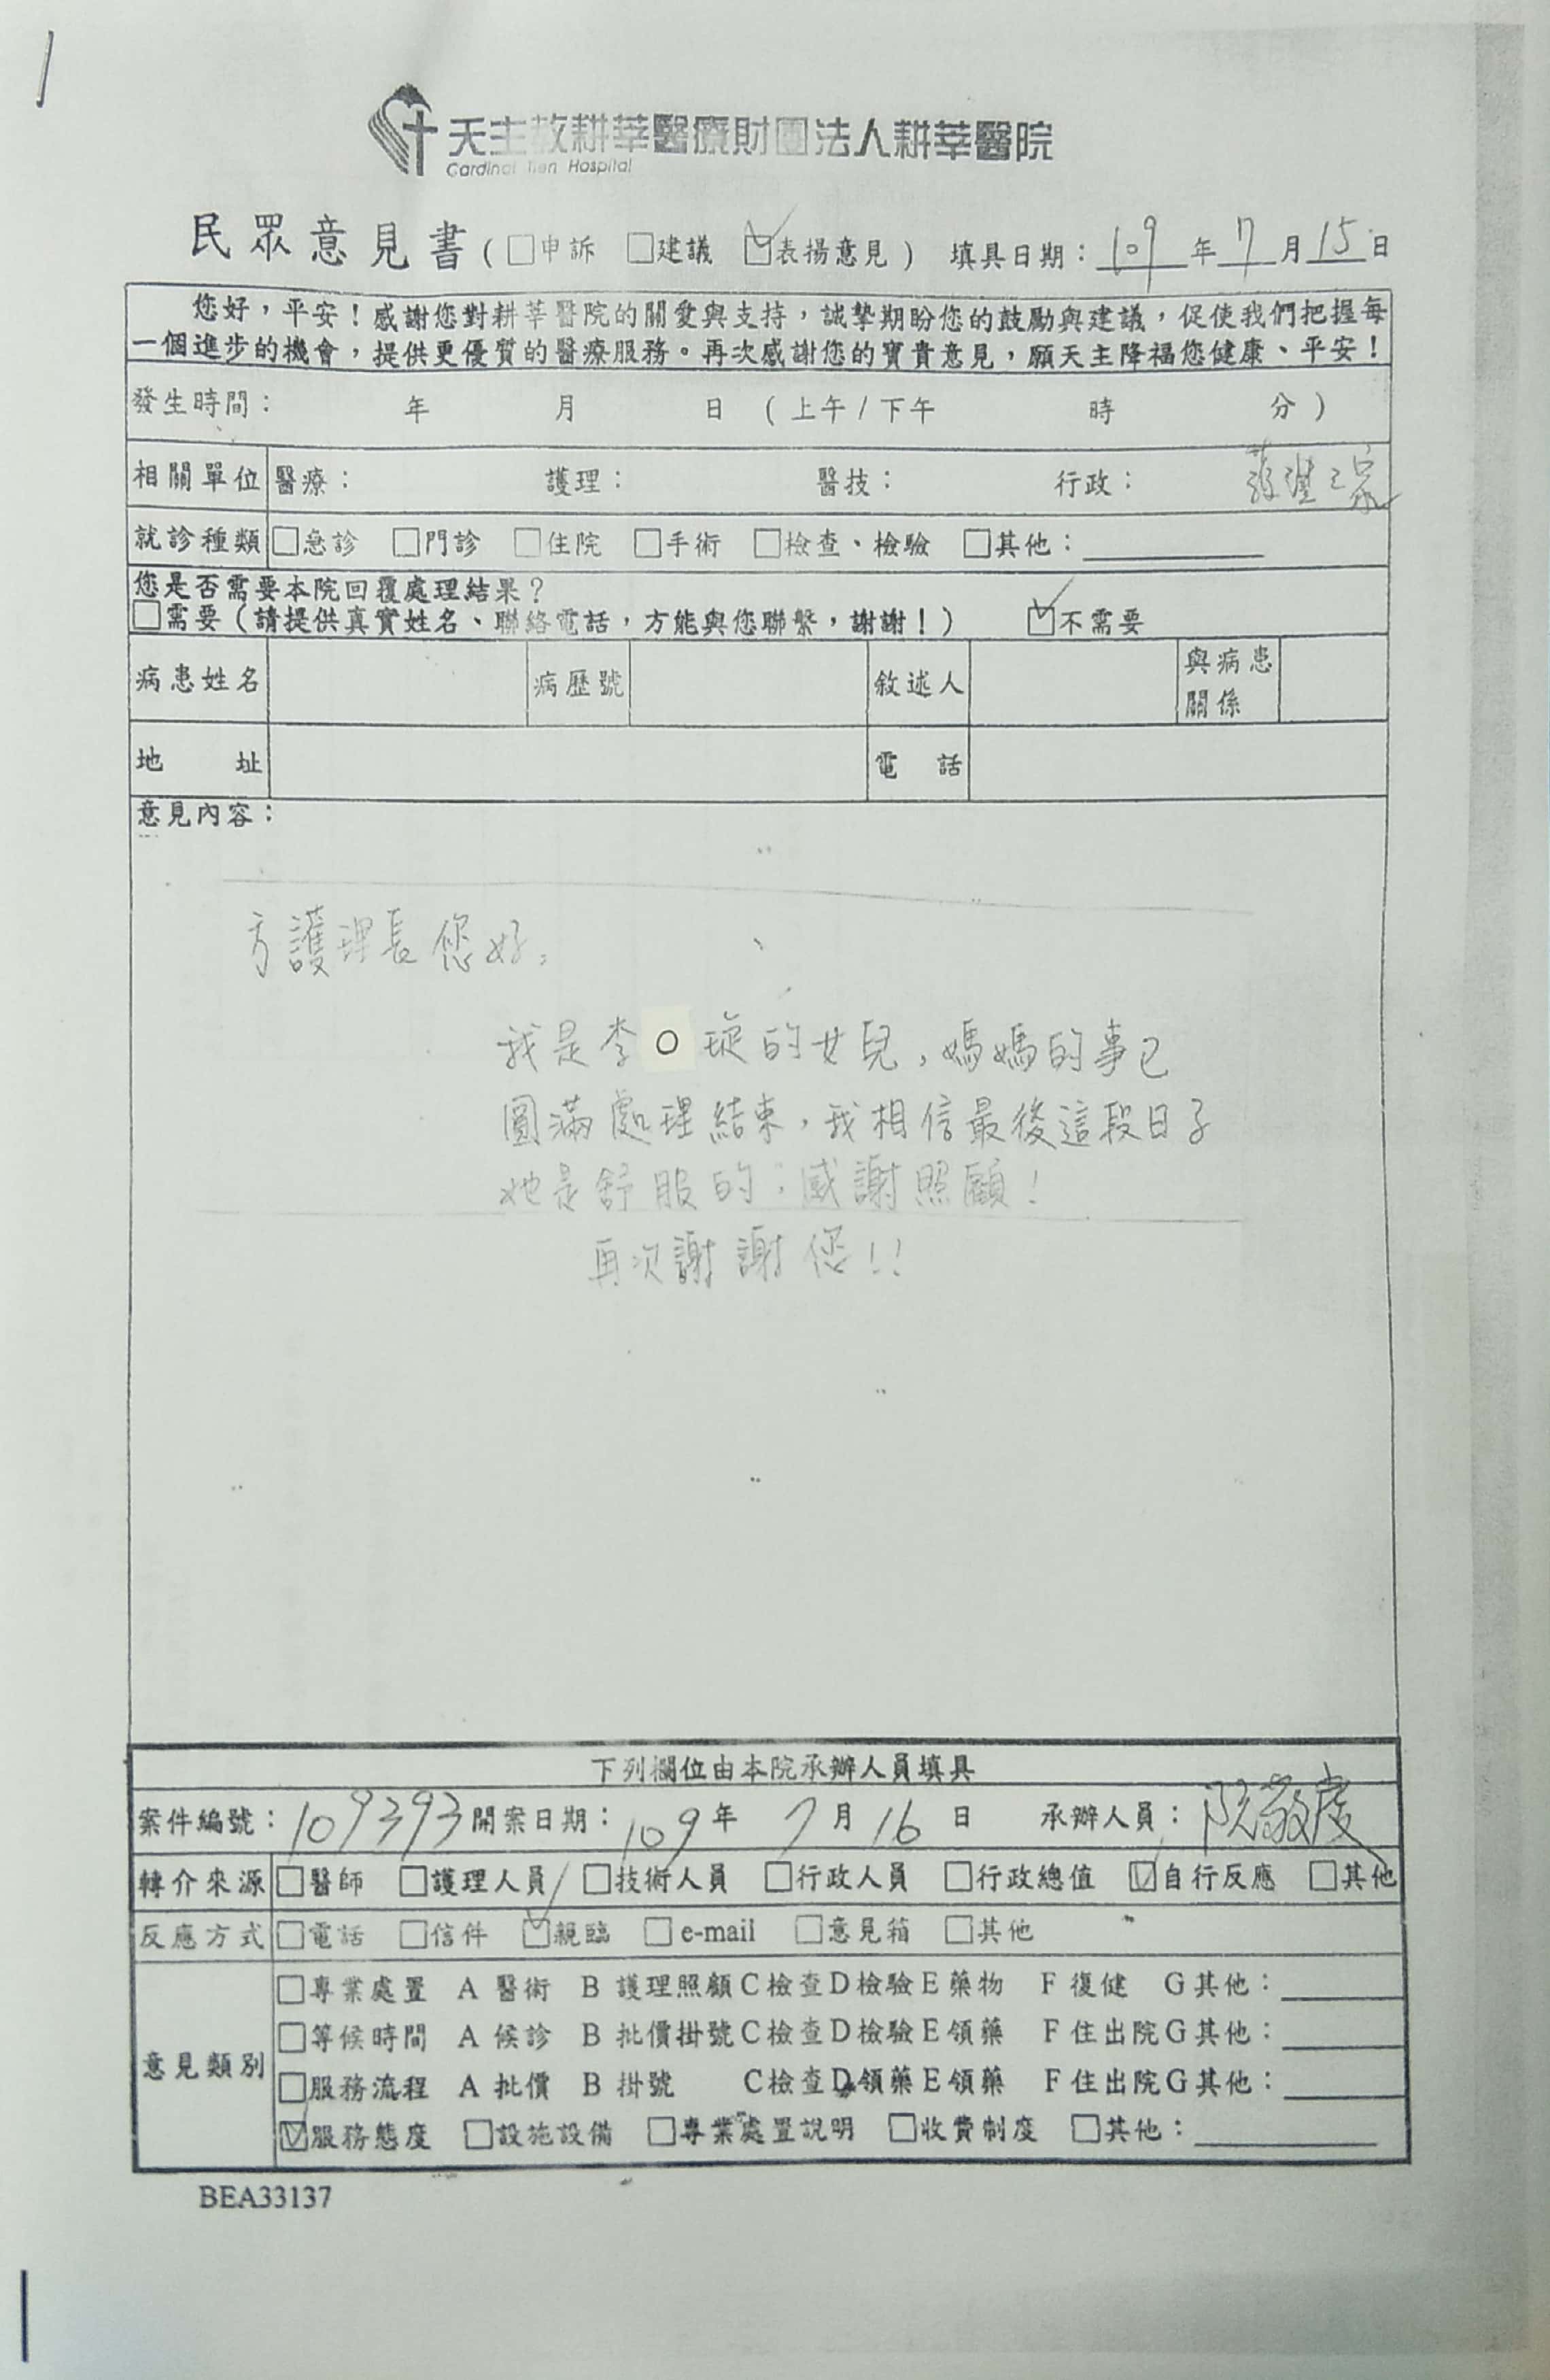 天主教耕莘醫療財團法人耕莘醫院
Cardinal Tien Hospital
民眾意見書(□申訴 □建議 ☑表揚意見) 填具日期:109年7月15日
您好,平安!感謝您對耕莘醫院的關愛與支持,誠摯期盼您的鼓勵與建議,促使我們把握每
一個進步的機會,提供更優質的醫療服務。再次感謝您的寶貴意見,願天主降福您健康、平安!
發生時間: 年 月 日 (上午/下午 時 分)
相關單位 醫療: 護理: 醫技: 行政:
就診種類 □急診 □門診 □住院 □手術 □檢查、檢驗 □其他:
您是否需要本院回覆處理結果?
□需要(請提供真實姓名、聯絡電話,方能與您聯繫,謝謝!) ☑不需要
病患姓名 病歷號 敘述人 與病患關係
地址 電話
意見內容:
方護理長您好,
我是李○琁的女兒,媽媽的事已
圓滿處理結束,我相信最後這段日子
她是舒服的;感謝照顧!
再次謝謝您!!
下列欄位由本院承辦人員填具
案件編號:109393 開案日期:109年7月16日 承辦人員:
轉介來源 □醫師 □護理人員 □技術人員 □行政人員 □行政總值 ☑自行反應 □其他
反應方式 □電話 □信件 ☑親臨 □e-mail □意見箱 □其他
意見類別
□專業處置 A 醫術 B 護理照顧 C 檢查 D 檢驗 E 藥物 F 復健 G 其他:
□等候時間 A 候診 B 批價掛號 C 檢查 D 檢驗 E 領藥 F 住出院 G 其他:
□服務流程 A 批價 B 掛號 C 檢查 D 領藥 E 領藥 F 住出院 G 其他:
☑服務態度 □設施設備 □專業處置說明 □收費制度 □其他:
BEA33137